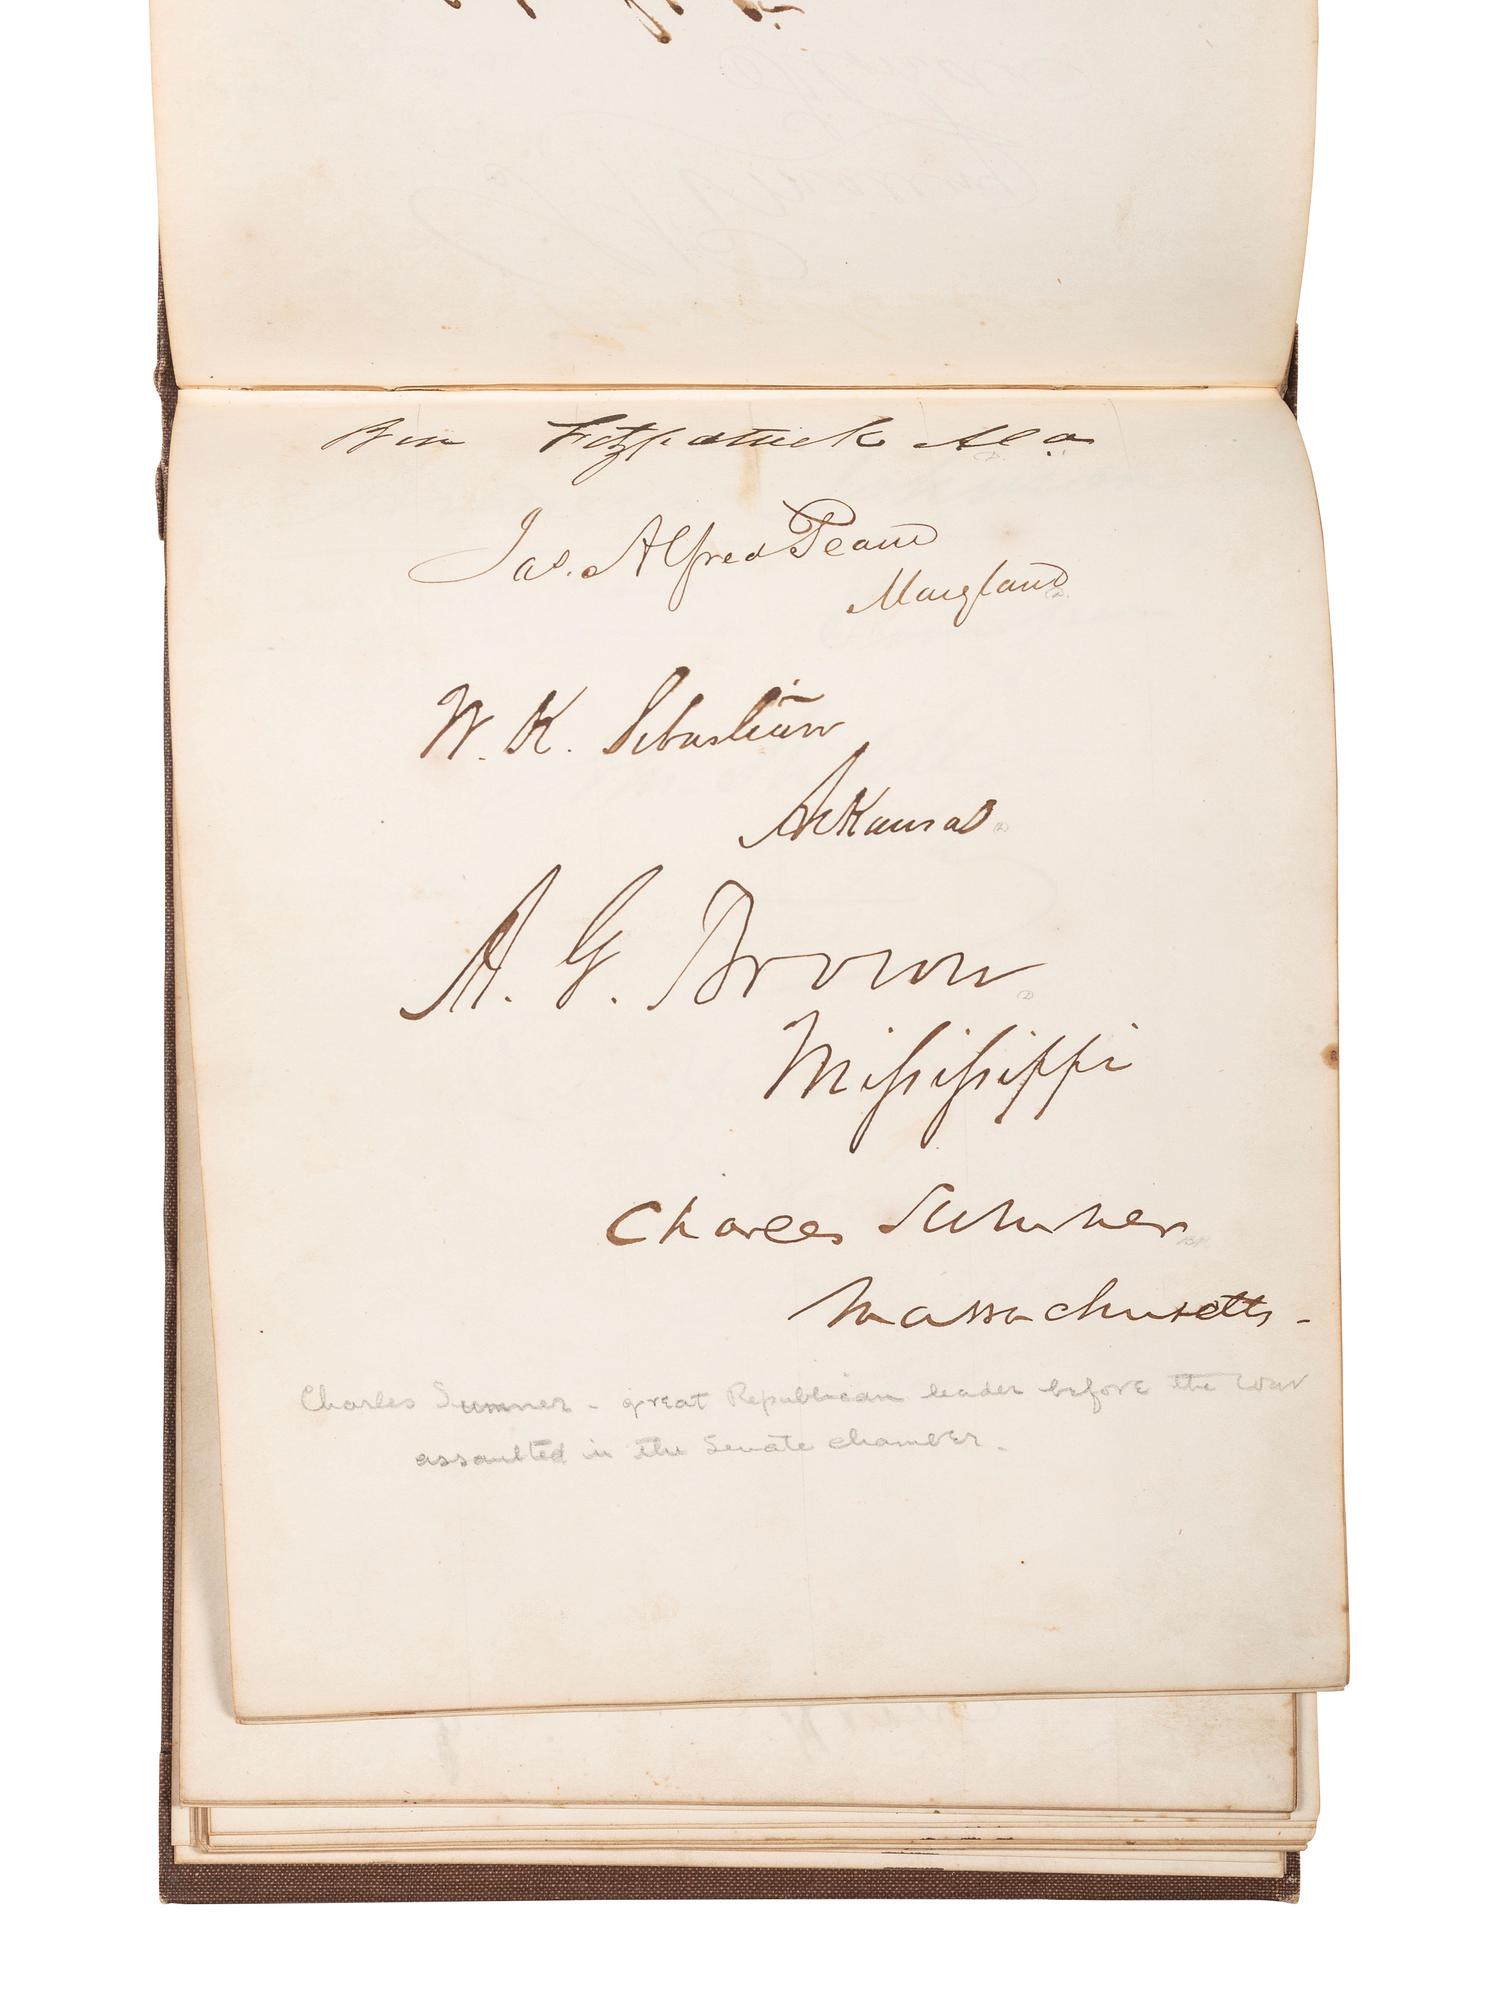 Ben Fitzpatrick Ala.
Jas. Alfred Pearce
Maryland
W. K. Sebastian
Arkansas
A. G. Brown
Mississippi
Charles Sumner
Massachusetts -
Charles Sumner - great Republican leader before the war
assaulted in the Senate chamber.